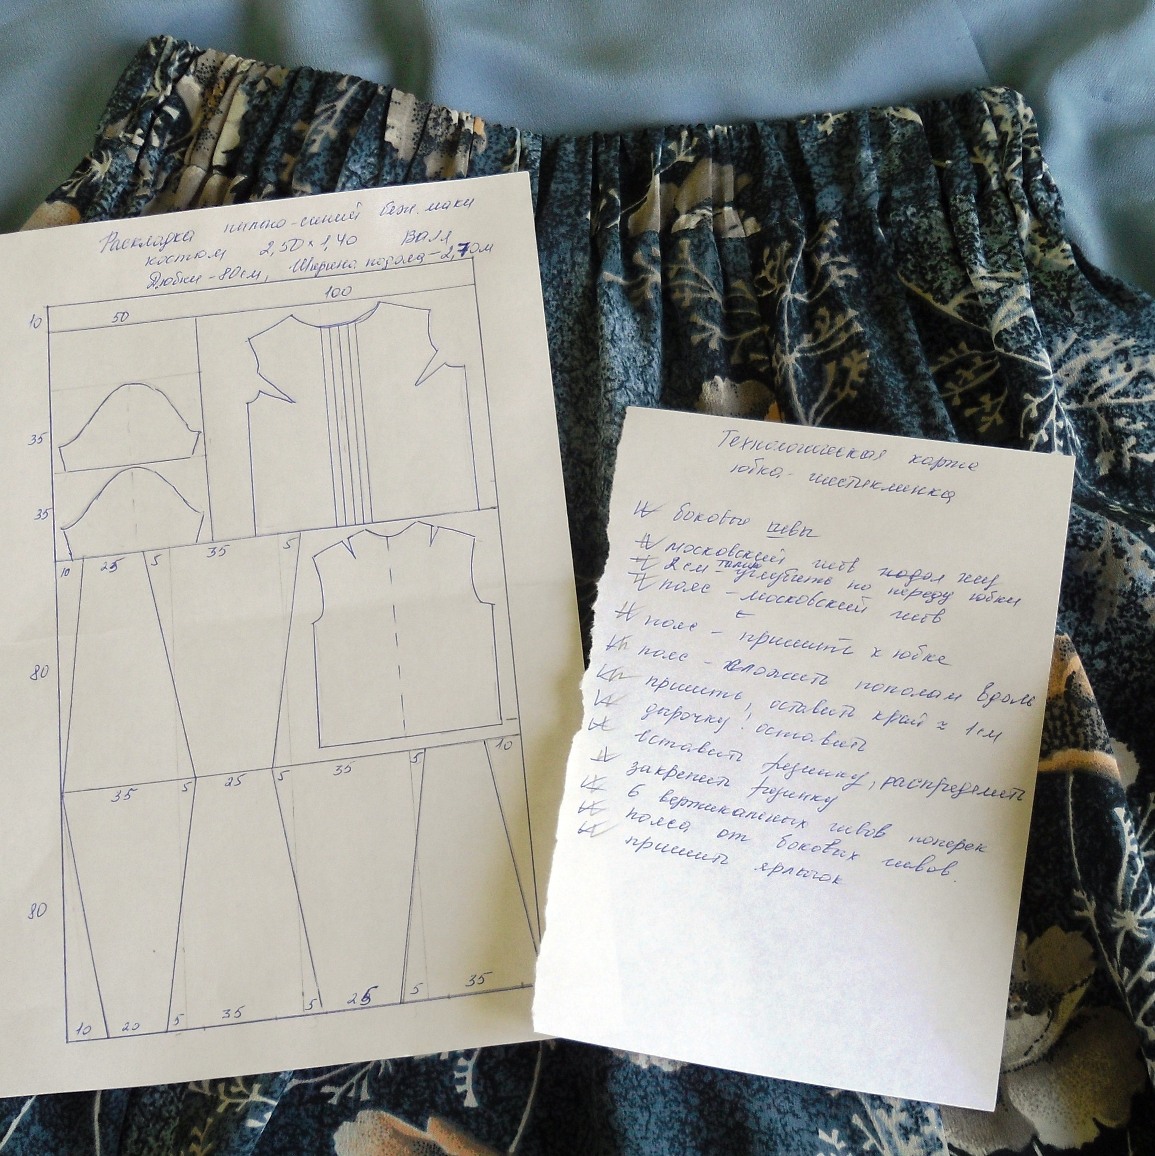 Раскладка пыльно-синий беж. маки
костюм 2,50×1,40 Валя
Дюбки-80см, Ширина подола-2,70м
10
50
100
35
35
10 25 5 35 5
80
35 5 25 5 35 5 10
80
10 20 5 35 5 25 5 35
Технологическая карта
юбка-шестиклинка
боковые швы
московский шов подол низ
2см - углубить по переду юбки
пояс - московский шов
пояс - пришить к юбке
пояс - сложить пополам вдоль
пришить, оставить край ≈ 1см
дырочку оставить
вставить резинку, распределить
закрепить резинку
6 вертикальных швов поперек
пояса от боковых швов.
пришить ярлычок